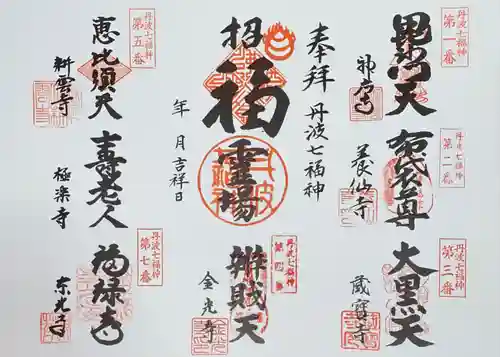 丹波七福神
第一番
毘沙門天
神応寺
丹波七福神
第二番
布袋尊
養仙寺
丹波七福神
第三番
大黒天
蔵寳寺
奉拝 丹波七福神
招福霊場
年 月吉祥日
丹波七福神
第四番
辨財天
金光寺
丹波七福神
第五番
恵比須天
耕雲寺
寿老人
極楽寺
丹波七福神
第七番
福禄寿
東光寺